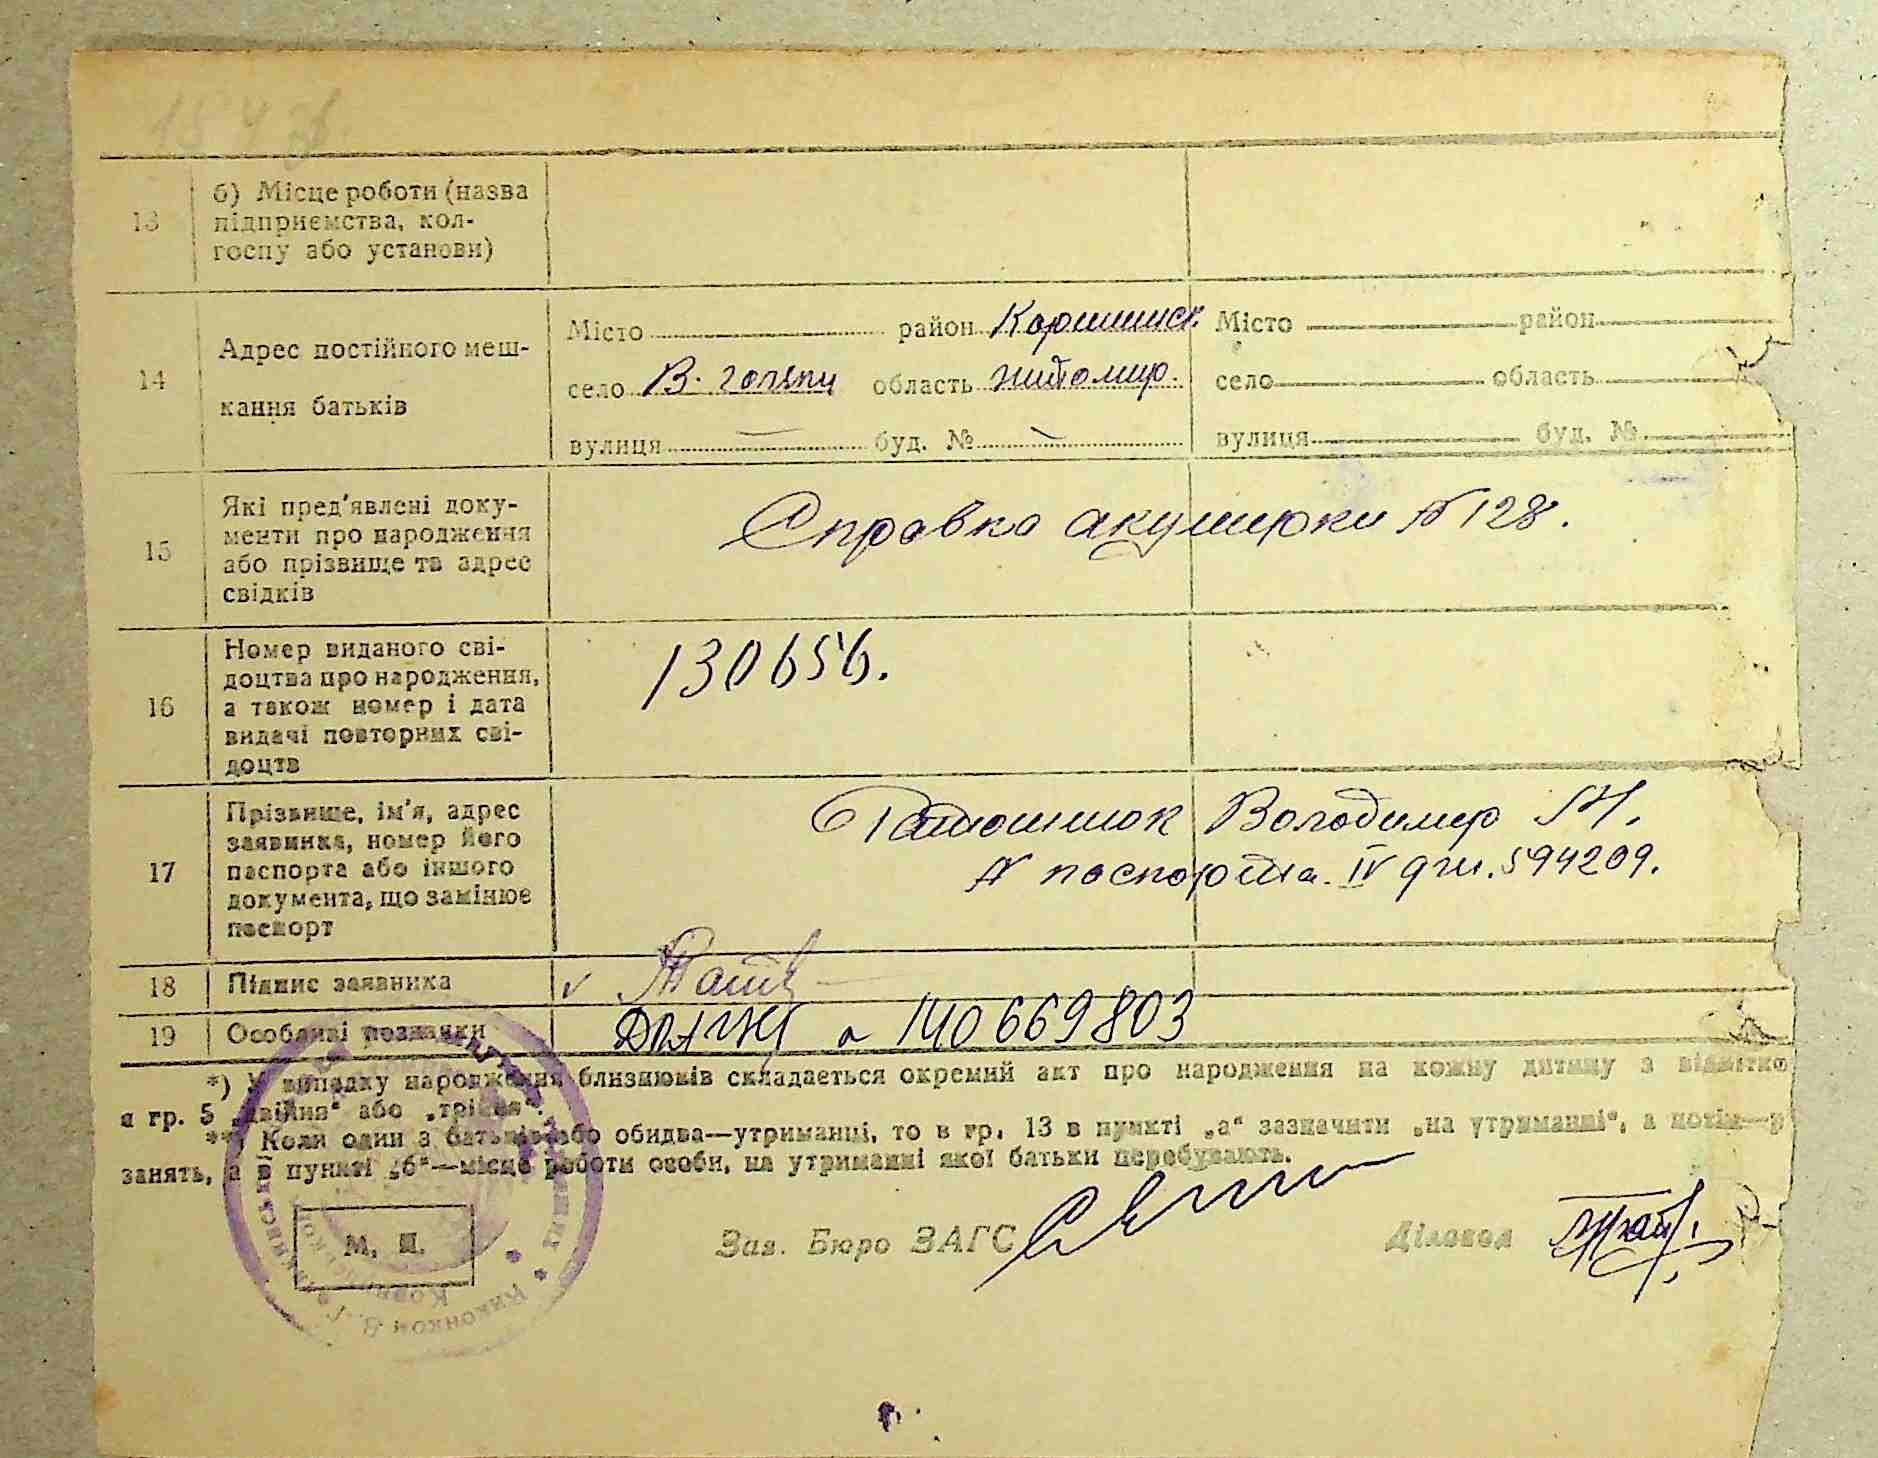 184
13
б) Місце роботи (назва
підприємства, кол-
госпу або установи)
14
Адрес постійного меш-
кання батьків
Місто район Коришиск.
село В. голяки область житомир.
вулиця — буд. № —
Місто район
село область
вулиця буд. №
15
Які пред'явлені доку-
менти про народження
або прізвище та адрес
свідків
Справка акушерки N 128.
16
Номер виданого сві-
доцтва про народження,
а також номер і дата
видачі повторних сві-
доцтв
130656.
17
Прізвище, ім'я, адрес
заявника, номер його
паспорта або іншого
документа, що замінює
паспорт
Володимир М.
N паспорта. IV 594209.
18
Підпис заявника
19
Особливі позначки
140669803
*) У випадку народження близнюків складається окремий акт про народження на кожну дитину з відмітко
в гр. 5 „двійня“ або „трійня“.
**) Коли один з батьків або обидва—утриманці, то в гр. 13 в пункті „а“ зазначити „на утриманні“, а потім—р
занять, а в пункті „б“—місце роботи особи, на утриманні якої батьки перебувають.
М. П.
Зав. Бюро ЗАГС
Діловод